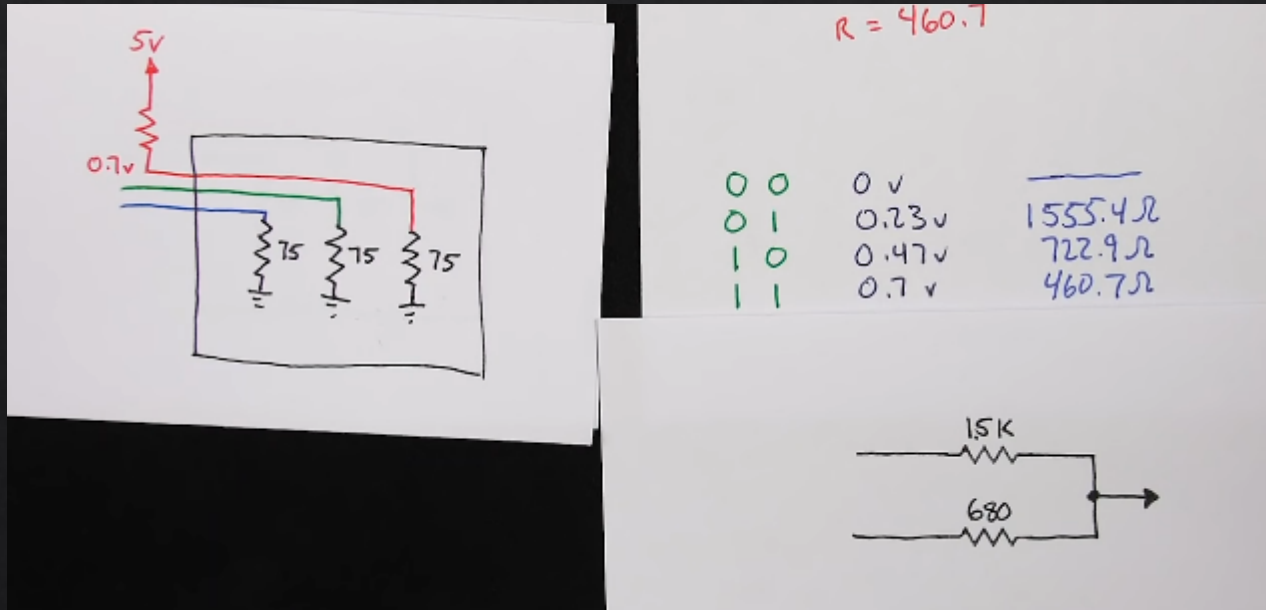 5v
0.7v
75 75 75
R = 460.7
0 0 0 v
0 1 0.23v 1555.4Ω
1 0 0.47v 722.9Ω
1 1 0.7 v 460.7Ω
1.5K
680